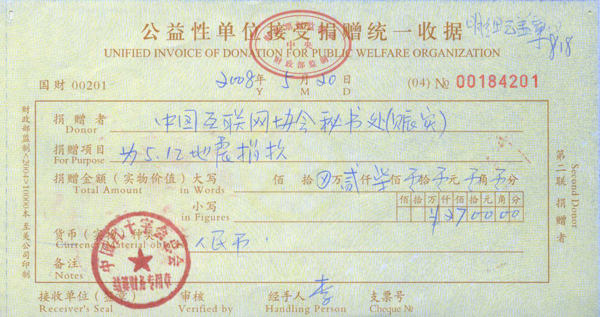 公益性单位接受捐赠统一收据
UNIFIED INVOICE OF DONATION FOR PUBLIC WELFARE ORGANIZATION
中央
财政部监制
8.18
国财 00201
2008年 5月20日
Y M D
(04) № 00184201
捐赠者 中国互联网协会秘书处(赈灾)
Donor
捐赠项目 为5.12地震捐款
For Purpose
捐赠金额（实物价值）大写 佰 拾⊗万贰仟柒佰 拾 元 角 分
Total Amount in Words
小写
in Figures
百十万千佰拾元角分
¥2700.00
货币（实物）种类 人民币
Currency
备注
Notes
中国红十字会总会
接收单位（签章）
Receiver's Seal
审核
Verified by
经手人 李
Handling Person
支票号
Cheque №
第二联 捐赠者
Second Donor